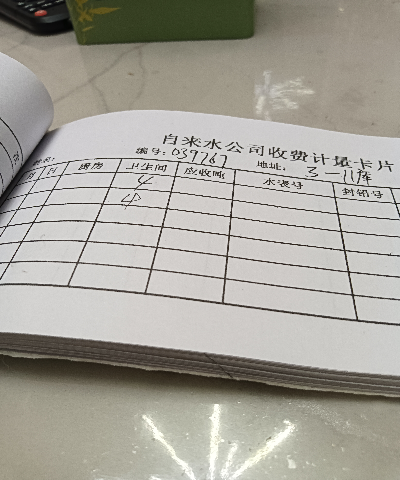 自来水公司收费计量卡片
姓名: 编号: 039767 地址: 3-11库
月 日 厨房 卫生间 应收吨 水表号 封铅号
4
4